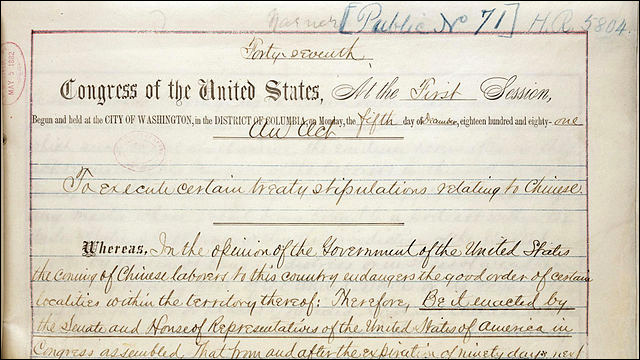 Warner [Public No 71] H.R. 5804.
MAY 5 1882
Forty-seventh
Congress of the United States, At the First Session,
Begun and held at the CITY OF WASHINGTON, in the DISTRICT OF COLUMBIA, on Monday, the fifth day of December, eighteen hundred and eighty-one
An Act
To execute certain treaty stipulations relating to Chinese.
Whereas, In the opinion of the Government of the United States
the coming of Chinese laborers to this country endangers the good order of certain
localities within the territory thereof: Therefore, Be it enacted by
the Senate and House of Representatives of the United States of America in
Congress assembled, That from and after the expiration of ninety days next